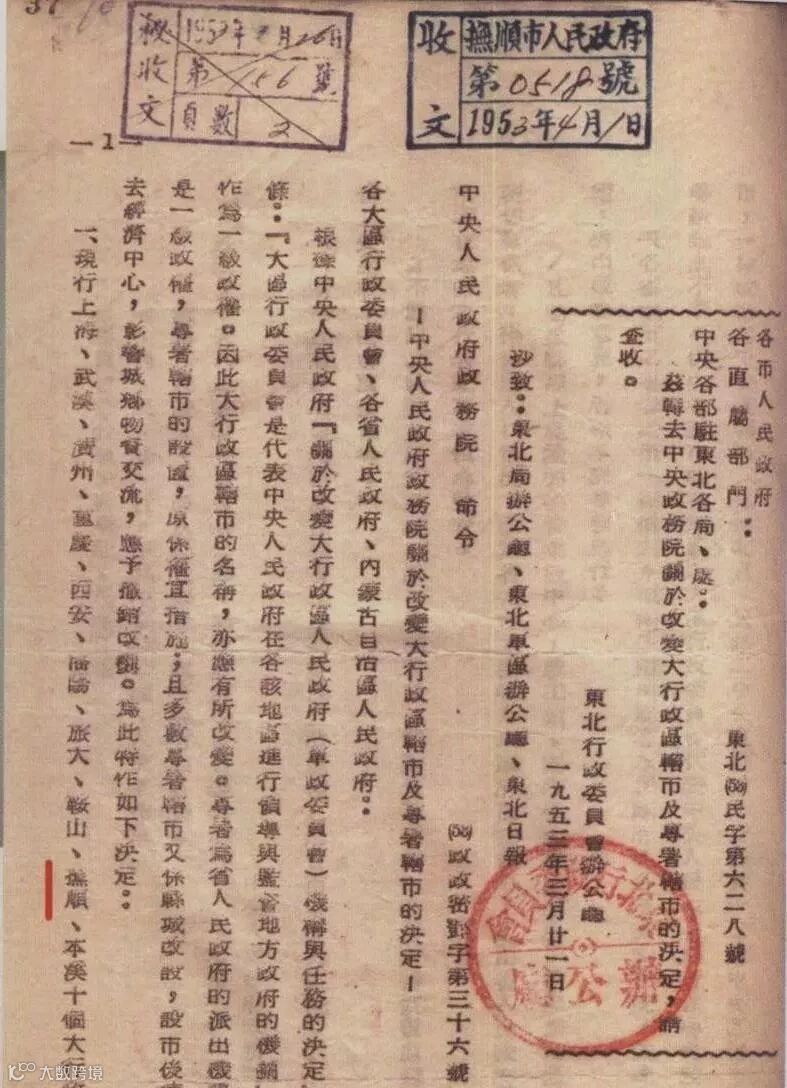 37
秘收文
1953年 月26日
第156號
頁數 2
收文
撫順市人民政府
第0518號
1953年4月1日
—1—
各市人民政府
各直屬部門： 東北(53)民字第六二八號
中央各部駐東北各局、處。
茲轉去中央政務院關於改變大行政區轄市及專署轄市的決定，請
查收。
東北行政委員會辦公廳
一九五三年三月廿一日
抄致：東北局辦公廳、東北軍區辦公廳、東北日報
中央人民政府政務院 命令
(53)政政密鄧字第三十六號
—中央人民政府政務院關於改變大行政區轄市及專署轄市的決定—
各大區行政委員會、各省人民政府、內蒙古自治區人民政府：
根據中央人民政府『關於改變大行政區人民政府（軍政委員會）機構與任務的決定
條：『大區行政委員會是代表中央人民政府在各該地區進行領導與監督地方政府的機關
作為一級政權。因此大行政區轄市的名稱，亦應有所改變。專署為省人民政府的派出機
是一級政權，專署轄市的設置，原係權宜措施；且多數專署轄市又係縣城改設，設市後
去經濟中心，影響城鄉物資交流，應予撤銷改變。為此特作如下決定：
一、現行上海、武漢、廣州、重慶、西安、瀋陽、旅大、鞍山、撫順、本溪十個大行
辦公廳
大数跨境